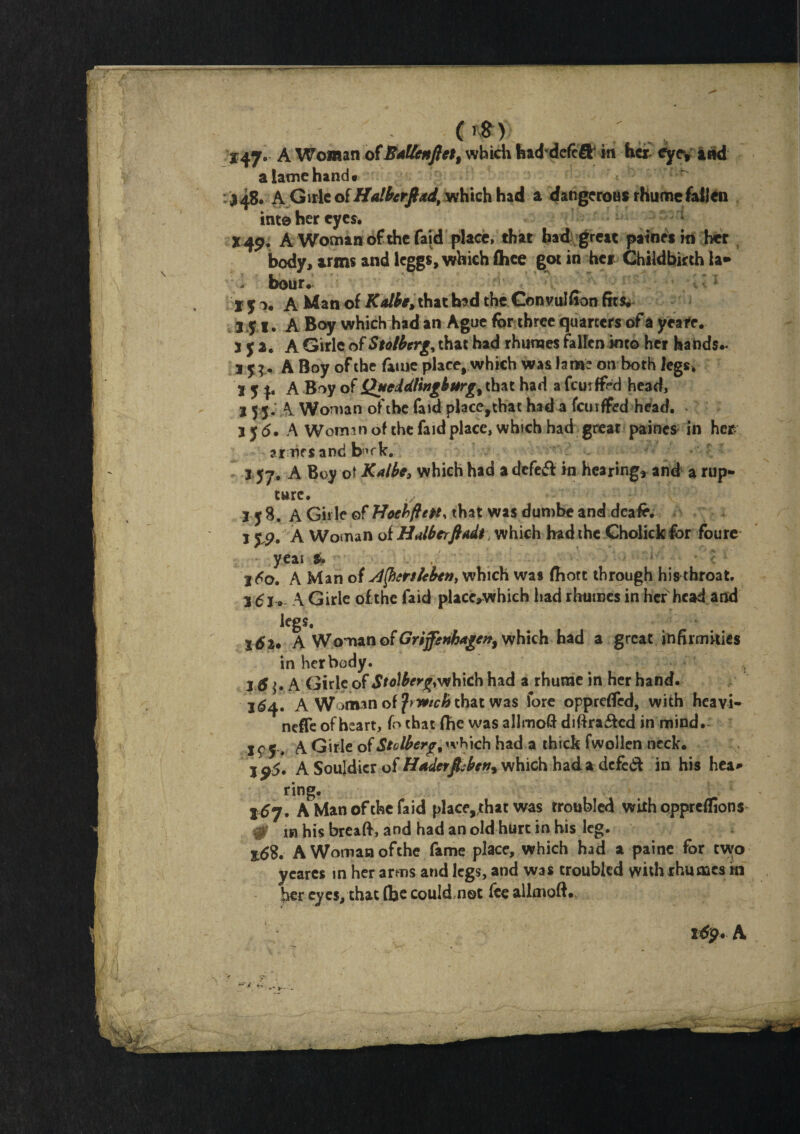 (18)
147. A Woman of Ballenſtet, which had defect in her eye, and
a lame hand.
148. A Girle of Halberſtad, which had a dangerous rhume fallen
into her eyes.
149. A Woman of the ſaid place, that had great paines in her
body, arms and leggs, which ſhee got in her Childbirth la-
bour.
150. A Man of Kalbe, that had the Convulſion fits.
151. A Boy which had an Ague for three quarters of a yeare.
152. A Girle of Stolberg, that had rhumes fallen into her hands.
153. A Boy of the ſame place, which was lame on both legs.
15 . A Boy of Queddlingburg, that had a ſcurffed head,
155. A Woman of the ſaid place, that had a ſcurffed head.
156. A Woman of the ſaid place, which had great paines in her
armes and back.
157. A Boy of Kalbe, which had a defect in hearing, and a rup-
ture.
158. A Girle of Hochſtett, that was dumbe and deafe.
159. A Woman of Halberſtadt which had the Cholick for foure
years.
160. A Man of Aſhersleben, which was ſhott through his throat.
161. A Girle of the ſaid place, which had rhumes in her head and
legs.
162. A Woman of Griffenhagen, which had a great infirmities
in her body.
163. A Girle of Stolberg, which had a rhume in her hand.
164. A Woman of that was ſore oppreſſed, with heavi-
neſſe of heart, ſo that ſhe was allmoſt diſtracted in mind.
195. A Girle of Stolberg, which had a thick ſwollen neck.
196. A Souldier of Haderſleben, which had a defect in his hea-
ring.
167. A Man of the ſaid place, that was troubled with oppreſſions
in his breaſt, and had an old hurt in his leg.
168. A Woman of the ſame place, which had a paine for two
yeares in her arms and legs, and was troubled with rhumes in
her eyes, that ſhe could not ſee allmoſt.
169. A